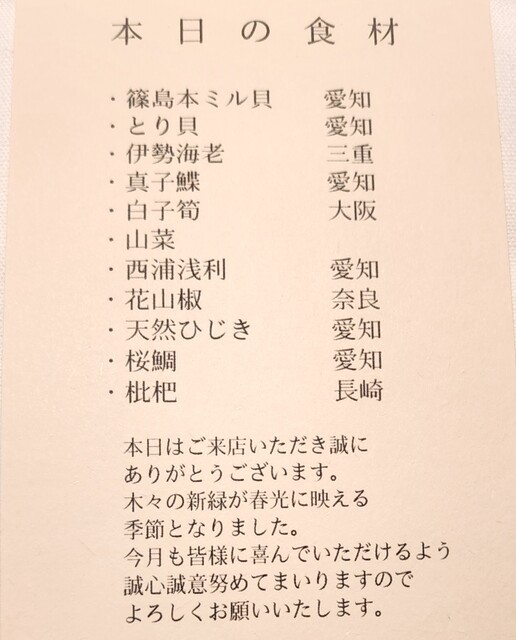 本日の食材
・篠島本ミル貝 愛知
・とり貝 愛知
・伊勢海老 三重
・真子鰈 愛知
・白子筍 大阪
・山菜
・西浦浅利 愛知
・花山椒 奈良
・天然ひじき 愛知
・桜鯛 愛知
・枇杷 長崎
本日はご来店いただき誠に
ありがとうございます。
木々の新緑が春光に映える
季節となりました。
今月も皆様に喜んでいただけるよう
誠心誠意努めてまいりますので
よろしくお願いいたします。